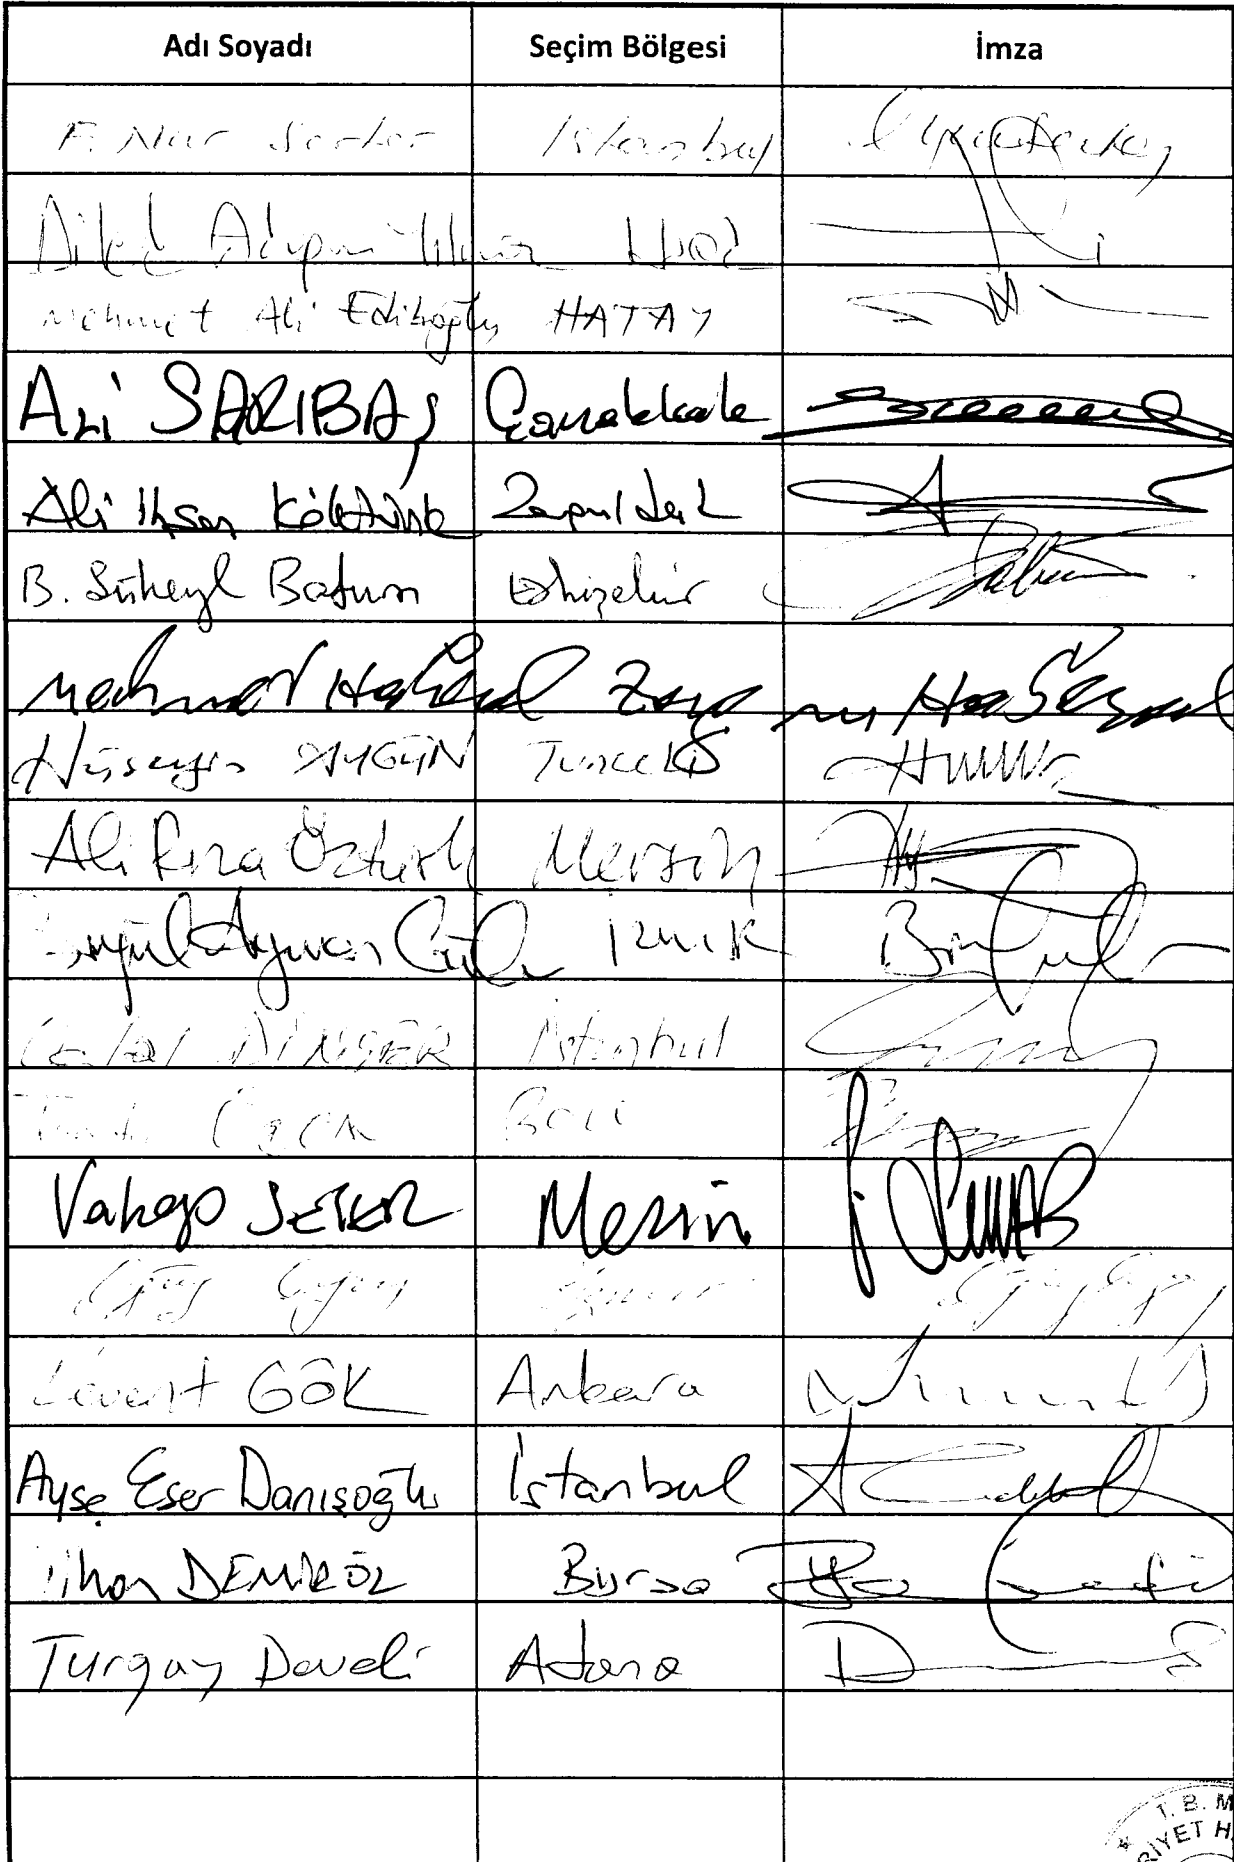 Adı Soyadı Seçim Bölgesi İmza
F. Nur Serter İstanbul
Dilek Akagün Yılmaz Uşak
Mehmet Ali Ediboğlu HATAY
Ali SARIBAŞ Çanakkale
Ali İhsan Köktürk Zonguldak
B. Süheyl Batum Eskişehir
Mehmet Haberal Zong
Hüseyin AYGÜN TUNCELİ
Ali Rıza Öztürk Mersin
Birgül Ayman Güler İzmir
Celal DİNÇER İstanbul
Tanju Özcan Bolu
Vahap SEÇER Mersin
Levent GÖK Ankara
Ayşe Eser Danışoğlu İstanbul
İlhan DEMİRÖZ Bursa
Turgay Develi Adana
T. B. M
RİYET H